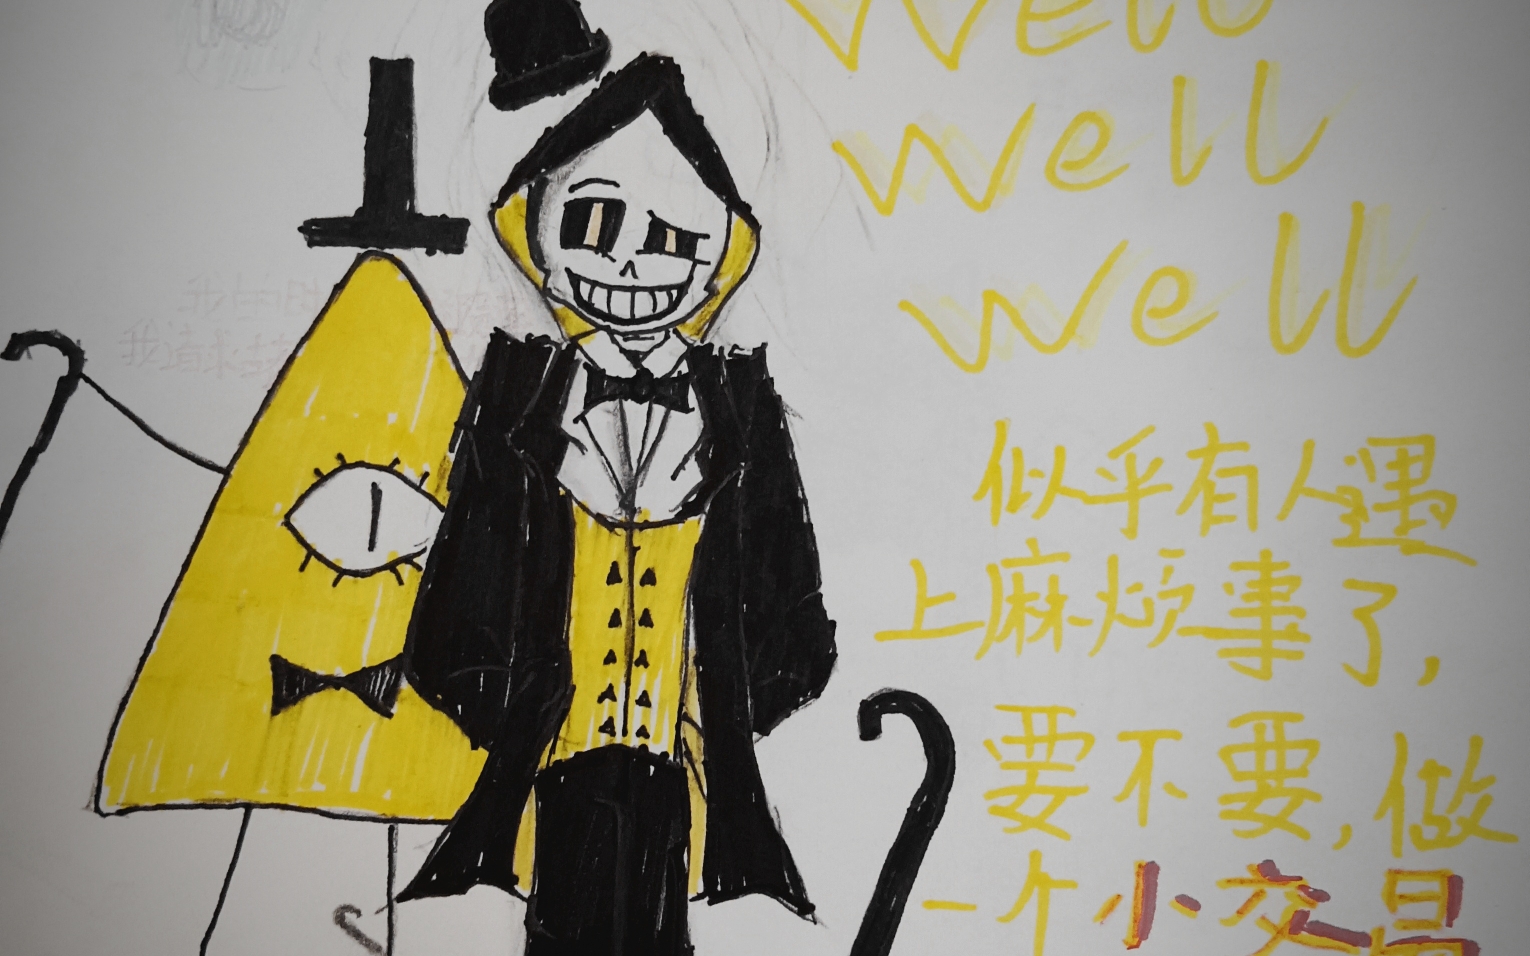 Well
Well
Well
似乎有人遇
上麻烦事了,
要不要,做
一个小交易